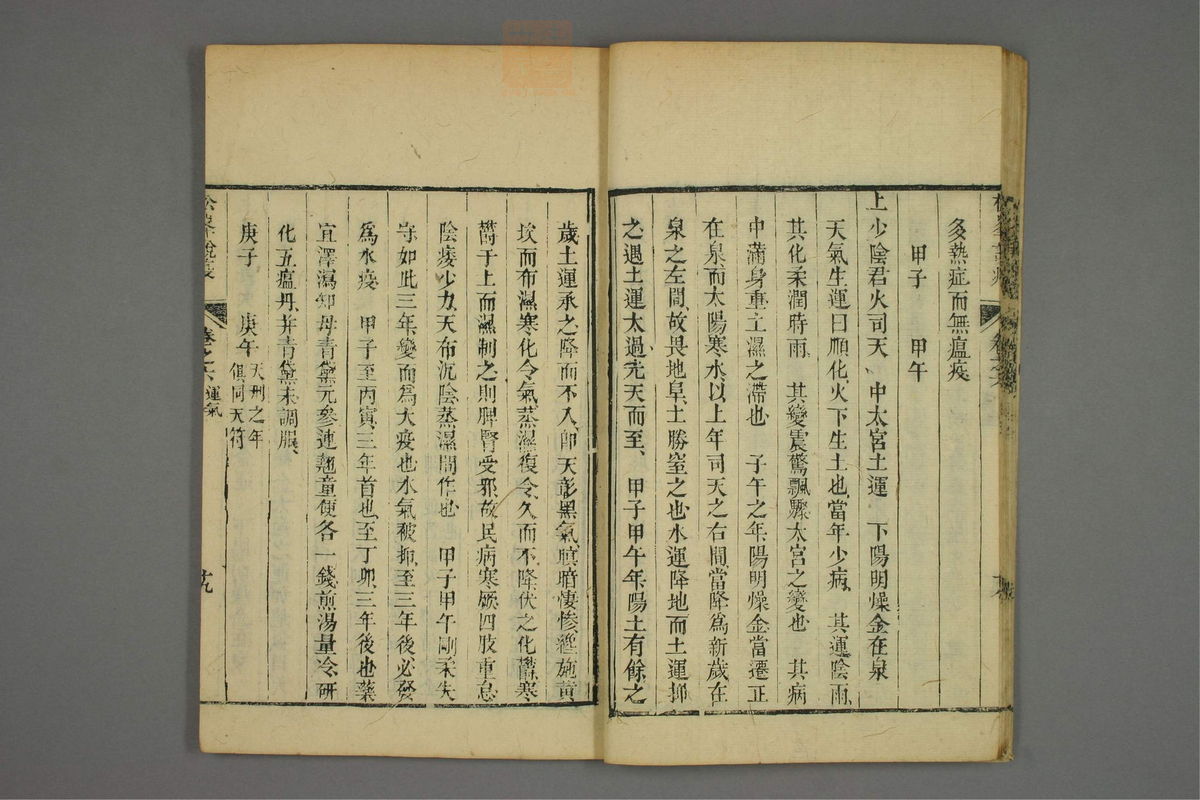 多熱症而無瘟疫
甲子 甲午
上少陰君火司天 中太宮土運 下陽明燥金在泉
天氣生運曰順化火下生土也當年少病 其運陰雨
其化柔潤時雨 其變震驚飄驟太宮之變也 其病
中滿身重土濕之滯也 子午之年陽明燥金當遷正
在泉而太陽寒水以上年司天之右間當降為新歲在
泉之左間故畏地阜土勝窒之也水運降地而土運抑
之遇土運太過先天而至 甲子甲午年陽土有餘之
歲土運承之降而不入即天彰黑氣瞑暗悽慘纔施黃
埃而布濕寒化令氣蒸濕復令久而不降伏之化鬱寒
鬱于上而濕制之則脾腎受邪故民病寒厥四肢重怠
陰痿少力天布沉陰蒸濕間作也 甲子甲午剛柔失
守如此三年變而為大疫也水氣被抑至三年後必發
為水疫 甲子至丙寅三年首也至丁卯三年後也藥
宜澤瀉知母青黛元參連翹童便各一錢煎湯量冷研
化五瘟丹并青黛末調服
庚子 庚午 天刑之年
俱同天符
松峯說疫
卷之六 運氣
廿九